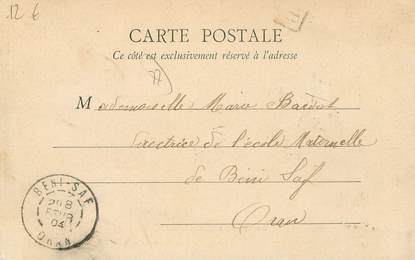 12 €
CARTE POSTALE
Ce côté est exclusivement réservé à l'adresse
Mademoiselle Marie
directrice de l'école Maternelle
de Béni Saf
Oran
BENI-SAF
FEVR
04
ORAN